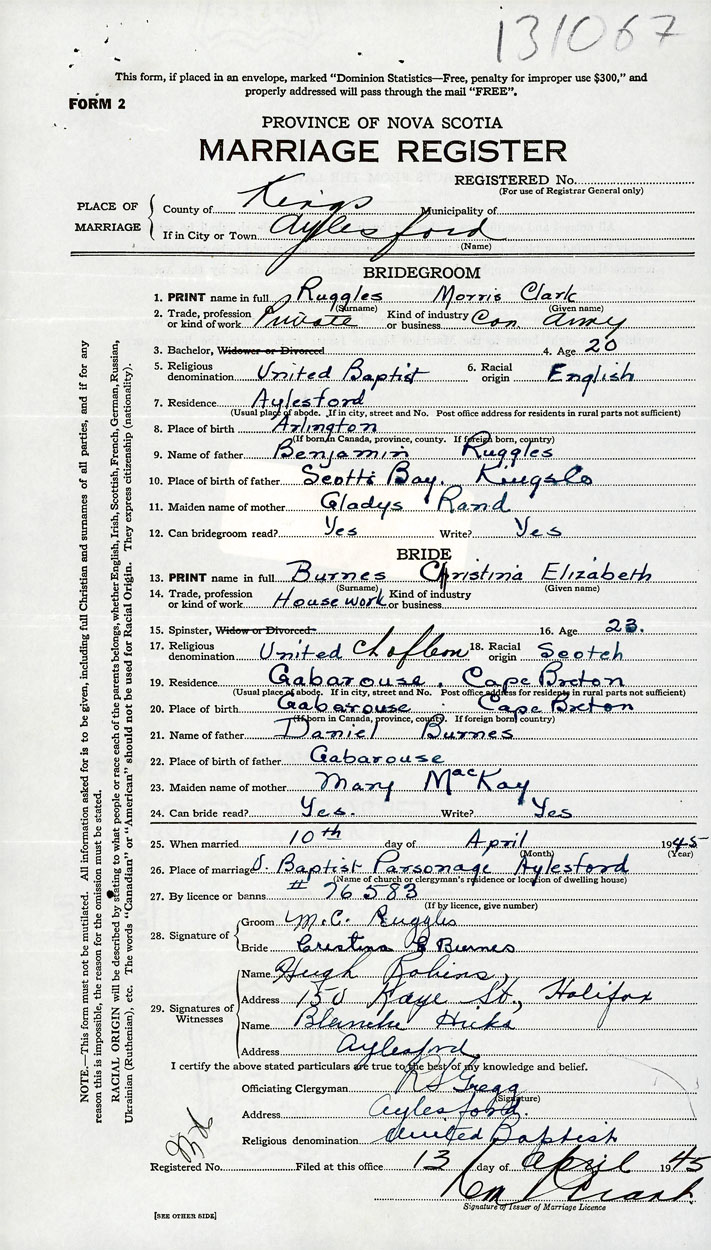 131067
This form, if placed in an envelope, marked "Dominion Statistics—Free, penalty for improper use $300," and
properly addressed will pass through the mail "FREE".
FORM 2
PROVINCE OF NOVA SCOTIA
MARRIAGE REGISTER
REGISTERED No.
(For use of Registrar General only)
PLACE OF MARRIAGE
County of Kings Municipality of
If in City or Town Aylesford
(Name)
BRIDEGROOM
1. PRINT name in full Ruggles Morris Clark
(Surname) (Given name)
2. Trade, profession or kind of work Private Kind of industry or business Can Army
3. Bachelor, Widower or Divorced 4. Age 20
5. Religious denomination United Baptist 6. Racial origin English
7. Residence Aylesford
(Usual place of abode. If in city, street and No. Post office address for residents in rural parts not sufficient)
8. Place of birth Arlington
(If born in Canada, province, county. If foreign born, country)
9. Name of father Benjamin Ruggles
10. Place of birth of father Scotts Bay. Kings Co
11. Maiden name of mother Gladys Rand
12. Can bridegroom read? Yes Write? Yes
BRIDE
13. PRINT name in full Burnes Christina Elizabeth
(Surname) (Given name)
14. Trade, profession or kind of work House work Kind of industry or business
15. Spinster, Widow or Divorced 16. Age 23.
17. Religious denomination United 18. Racial origin Scotch
19. Residence Gabarouse. Cape Breton
(Usual place of abode. If in city, street and No. Post office address for residents in rural parts not sufficient)
20. Place of birth Gabarouse Cape Breton
(If born in Canada, province, county. If foreign born, country)
21. Name of father Daniel Burnes
22. Place of birth of father Gabarouse
23. Maiden name of mother Mary MacKay
24. Can bride read? Yes. Write? Yes
25. When married 10th day of April 1945
(Month) (Year)
26. Place of marriage U. Baptist Parsonage Aylesford
(Name of church or clergyman's residence or location of dwelling house)
27. By licence or banns # 76583
(If by licence, give number)
28. Signature of
Groom M.C. Ruggles
Bride Cristina E Burnes
29. Signatures of Witnesses
Name Hugh Robins,
Address 150 Kaye St., Halifax
Name Blanche Hicks
Address Aylesford
I certify the above stated particulars are true to the best of my knowledge and belief.
Officiating Clergyman R S Gregg
(Signature)
Address Aylesford.
Religious denomination United Baptist
Registered No. Filed at this office 13 day of April 1945
Signature of Issuer of Marriage Licence
[SEE OTHER SIDE]
NOTE.—This form must not be mutilated. All information asked for is to be given, including full Christian and surnames of all parties, and if for any
reason this is impossible, the reason for the omission must be stated.
RACIAL ORIGIN will be described by stating to what people or race each of the parents belongs, whether English, Irish, Scottish, French, German, Russian,
Ukrainian (Ruthenian), etc. The words "Canadian" or "American" should not be used for Racial Origin. They express citizenship (nationality).